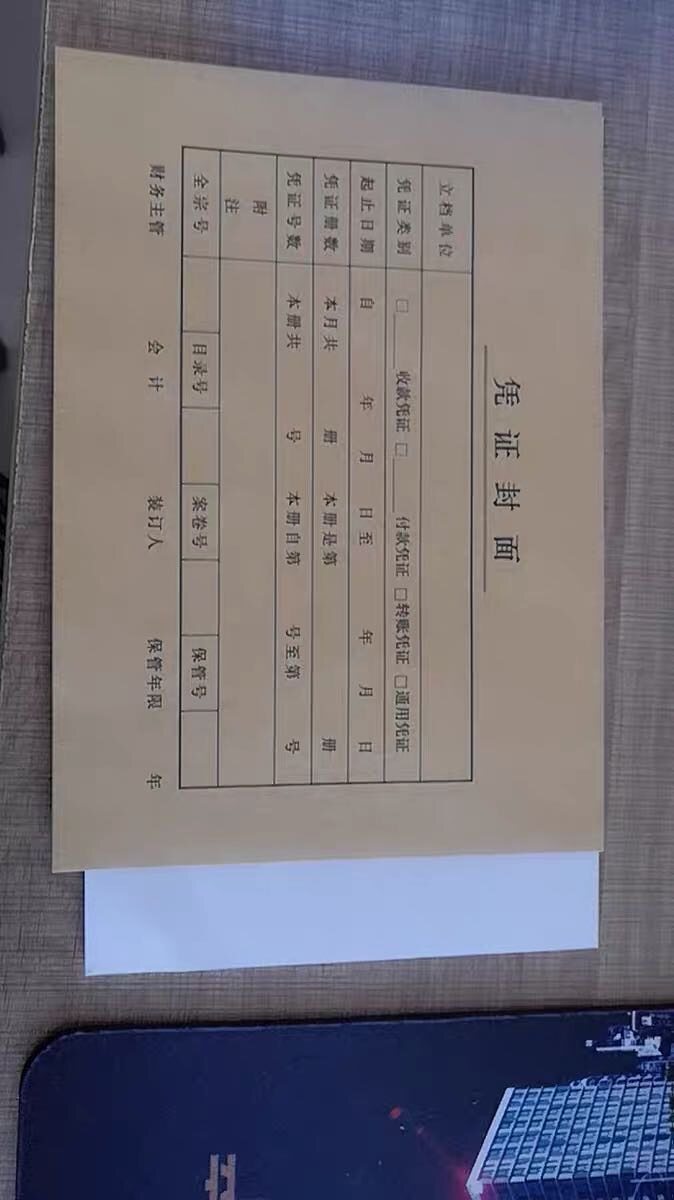 凭证封面
立档单位
凭证类别 □ 收款凭证 □ 付款凭证 □转账凭证 □通用凭证
起止日期 自 年 月 日至 年 月 日
凭证册数 本月共 册 本册是第 册
凭证号数 本册共 号 本册自第 号至第 号
附注
全宗号 目录号 案卷号 保管号
财务主管 会计 装订人 保管年限 年